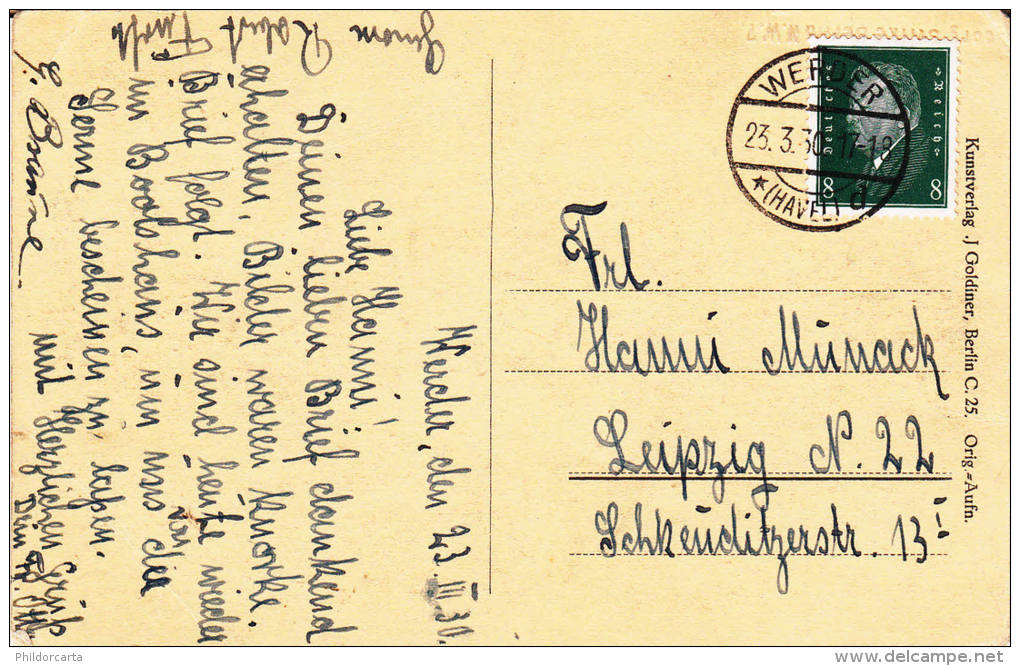 Werder, den 23. III. 30.
Liebe Hanni!
Deinen lieben Brief dankend
erhalten, Bilder waren knorke.
Brief folgt. Wir sind heute wieder
im Bootshaus, um uns von der
Sonne bescheinen zu laßen.
mit Herzlichen Gruß
Dein
Robert
WERDER
23. 3. 30. 17-18
★ (HAVEL) d
Deutsches Reich
8 8
Frl.
Hanni Munack
Leipzig N. 22
Schkeuditzerstr. 13 I
Kunstverlag J. Goldiner, Berlin C. 25. Orig.=Aufn.
Phildorcarta